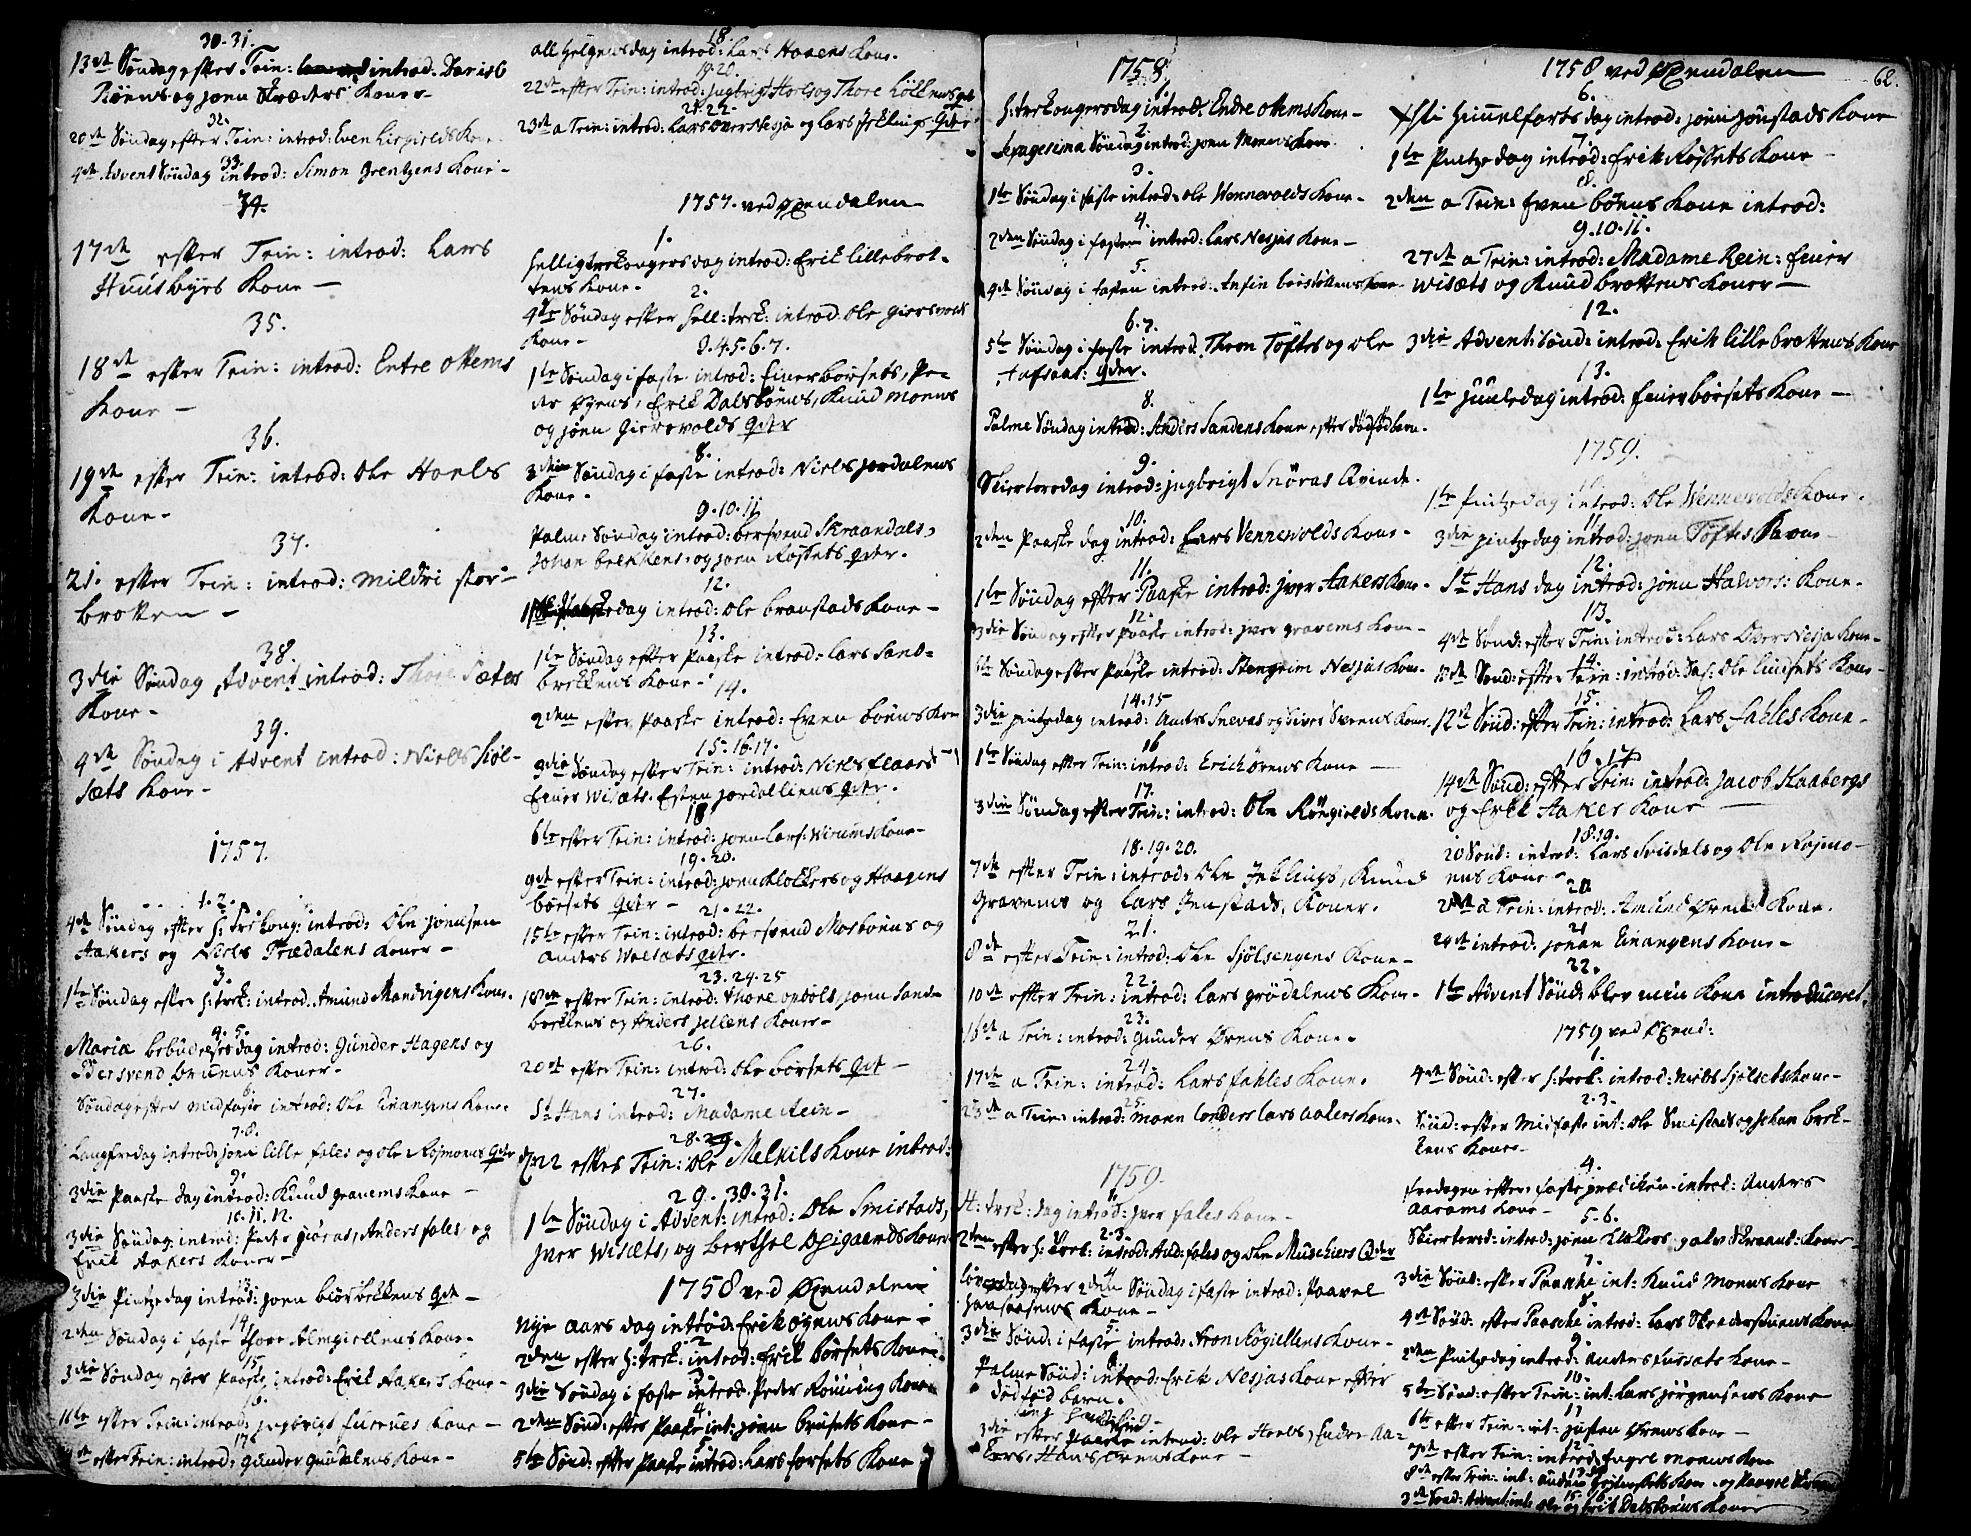 30-31.
13de Søndag efter Trin: introd. Davis
Røens og Joen Skreders Koner-
32.
20de Søndag efter Trin: introd: Even Lirgields Kone
33.
4de Advent Søndag introd: Simon Grentzens Kone-
34.
17de efter Trin: introd: Lars
Huusbyes Kone-
35.
18de efter Trin: introd: Entre Ottems
Kone-
36.
19de efter Trin: introd: Ole Hoels
Kone-
37.
21. efter Trin: introd: Mildri Stor-
brotten-
38.
3die Søndag Advent introd: Thore Sæters
Kone-
39.
4de Søndag i Advent introd: Niels Siøl-
sæts Kone-
1757.
1. 2.
4de Søndag efter H: Trekong: introd: Ole Jonissen
Aakers og Niels Trædalens Koner-
3.
1te Søndag efter H: Trek: introd. Amund Mandvigens Kone.
4. 5.
Mariæ Bebudelses dag introd: Gunder Hagens og
Bersvend Bruuns Koner-
6.
Søndag efter Midfaste introd: Ole Einangens Kone.
7.8.
Langfredag introd: Joen Lille Fales og Ole Rosmoens Qdr
9.
3die Paaske dag introd: Knud Gravems Kone-
10. 11. 12.
3die Søndag: introd: Peder Giøras, Anders Fales og
Erik Aakers Koner-
13.
3die Pintzedag introd: Joen Biørbekkens Qde-
14.
2den Søndag i faste Thore Almgiellens Kone-
15.
3die Søndag efter Paaske introd: Erik Aakers Kone-
16.
11te efter Trin: introd: Ingbrigt Furrues Kone-
17.
efter Trin: introd: Gunder Gudalens Kone-
18.
All Helgensdag introd: Lars Hovens Kone.
19. 20.
22de efter Trin: introd: Ingbrigt Hoels og Thore Løkkens Qdr
21. 22
23de a Trin: introd: Lars Over Nesja og Lars Jeklings Qder
1757. ved Øxendalen
1.
Helligtrekongers dag introd: Erik Lillebrot-
tens Kone-
2.
4de Søndag efter Hell: trek: introd: Ole Giersvolds
Kone-
3. 4. 5. 6. 7.
1te Søndag i faste introd: Einer Børsets, Pe-
der Øyens, Erik Dalsbøens, Knud Moens
og Joen Giersvolds Qder
8.
3die Søndag i faste introd: Niels Jordalens
Kone-
9. 10. 11
Palme Søndag introd: Bersvend Skraandals,
Johan Brekkens, og Joen Røssets Qder.
12.
dag introd: Ole Branstads Kone-
13.
1te Søndag efter Paaske introd: Lars Sand-
brekkens Kone-
14.
2den efter Paaske introd: Even Bøens Kone
15. 16. 17.
3die Søndag efter Trin: introd: Niels Flaaes
Einer Wisæts. Esten Jordallens Qdr.
18
6te efter Trin: introd: Joen Lars: Wirums Kone-
19. 20.
9de efter Trin: introd: Joen Klokkers og Haagens
Børsets Qdr-
21. 22.
15de efter Trin: introd: Bersvend Mosbøens og
Anders Wolsæts Qdr.
23. 24. 25
18de efter Trin: introd: Thore Opdøls, Joen Sand-
brekkens og Anders Jellens Koner-
26.
20de efter Trin: introd: Ole Børsets Qde-
27.
St Hans introd: Madame Rein-
28.
22 efter Trin: Ole Melkils Kone introd:
29. 30. 31.
1te Søndag i Advent: introd: Ole Smistads,
Iver Wisæts, og Berthel Opigaards Koner
1758 ved Øxendalen
Nye aars dag introd: Erik Øyens Kone-
2
2den efter H: trek: introd: Erik Børsets Kone
3
3die Søndag i faste introd. Peder Rønning Kone
4.
2den Sønd: efter Paaske int: Joen Brusets Kone-
5
5te Sønd: efter Paaske introd: Lars Forsets Kone
1758.
1.
H: Trekongersdag introd: Endre Ottems Kone-
2.
Sexagesima Søndag introd: Joen Moens Kone.
3.
1te Søndag i faste introd: Ole Wennevolds Kone-
4.
2den Søndag i fasten introd: Lars Nesjas Kone-
5.
4de Søndag i fasten introd: Anfin Kone-
6. 7.
5te Søndag i faste introd: Thron Tøftes og Ole
Hafsaas: Qder.
8.
Palme Søndag introd: Anders Sandens Kone, efter dødfød barn.
9.
Skiertorsdag introd: Ingbrigt Snøvas Qvinde.
10.
2den Paaske dag introd: Lars Vennevolds Kone-
11.
1te Søndag efter Paaske introd: Iver Aakers Kone-
12.
3die Søndag efter Paaske introd: Iver Gravems Kone-
13.
5te Søndag efter Paaske introd: Stengrim Nesjas Kone-
14. 15
3die Pintzedag introd: Anders Snevas og Siver Svens Koner.
16
1te Søndag efter Trin: introd: Erich Ørens Kone-
17.
3die Søndag efter Trin: introd: Ole Røngiolds Kone.
18. 19. 20.
7de efter Trin: introd: Ole Jeklings, Knud
Gravems og Lars Jenstads, Koner.
21.
8de efter Trin: introd: Ole Siølsengens Kone-
22.
10de efter Trin: introd: Lars Grødalens Kone-
23.
16de a Trin: introd: Gunder Ørens Kone-
24.
17de a Trin: introd: Lars Fahles Kone.
25.
23de a Trin: introd: Lars Aakers Kone-
1759.
1.
H: trek: dag introd: Iver Fales Kone-
2. 3.
2den efter H: trek: introd: And: Fales og Ole Muschiers Qder
4
efter 2den Søndag i faste introd: Paavel
Kone-
5
3die Sønd: i faste introd: Aron Røgiellens Kone-
6
Palme Sønd: introd: Erik Nesjas Kone efter
dødfød barn.
3die efter Paaske introd: Ole Hoels, Endre Aa-
kers, Hans Ørens Kone-
62.
1758 ved Øxendalen
6.
Xsti Himmelfarts dag introd: Joen Jønstads Kone
7.
1te Pintzedag introd: Erik Røssets Kone-
8.
2den a Trin: Even Bøens Kone introd:
9. 10. 11.
27de a Trin: introd: Madame Rein: Einer
Wisæts og Knud Brottens Koner-
12.
3die Advent: Sønd: introd: Erik Lillebrottens Kone
13.
1te Juuledag introd: Einer Børsets Kone-
1759.
1te Pintzedag introd: Ole Wennevolds Kone.
11.
3die Pintzedag introd: Joen Tøftes Kone-
12.
St Hans dag introd: Joen Halvors: Kone-
13.
4de Sønd: efter Trin: introd: Lars Over Nesja Kone-
14.
10de Sønd: efter Trin: introd: Ole Lindsets Kone-
15.
12te Sønd: efter Trin: introd: Lars Fahles Kone-
16. 17
14de Sønd: efter Trin: introd: Jacob Skaabergs
og Erik Aaker Kone-
18. 19.
20 Sønd: introd: Lars Svisdals og Ole Rosmo-
ens Kone-
20
a Trin: introd: Amund Ørens Kone.
21
24de introd: Johan Einangens Kone-
22.
1te Advent Sønd: blev min Kone introduceret.
1759 ved Øxend:
1.
4de Sønd: efter H: trek: introd: Niels Siølsets Kone-
2. 3.
Sønd: efter Midfaste int: Ole Smistads og Johan Brek-
kens Koner-
4.
Fredagen efter: faste prædiken introd: Anders
Aarams Kone-
5-6.
Skiertorsd: introd: Joen Klokkers, Halv Skraand: Koner-
7.
3die Sønd: efter Paaske int: Knud Moens Kone
8.
4de Sønd: efter Paaske introd: Lars Skredersties Kone
9.
2den Pintzedag introd: Anders Fursæts Kone-
10.
5te Sønd: efter Trin: int: Lars Jørgensens Kone
11
6te efter Trin: int: Justen Ørens Kone-
12
7de efter Trin: introd: Engel Moens Kone
13-14
8de efter Trin: int: Kone og Paavel
15. 16
3de Sønd: Advent: int: Ole og Erik Dalsbøens Koner-